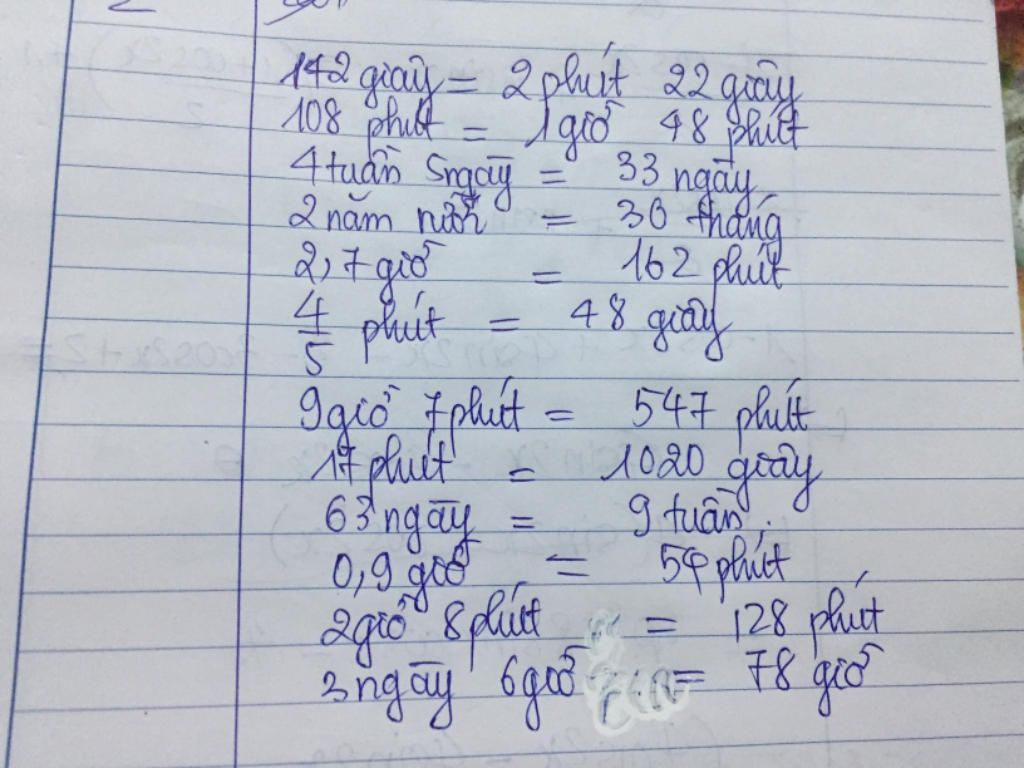 142 giây = 2 phút 22 giây
108 phút = 1 giờ 48 phút
4 tuần 5 ngày = 33 ngày
2 năm rưỡi = 30 tháng
2,7 giờ = 162 phút
4/5 phút = 48 giây
9 giờ 7 phút = 547 phút
17 phút = 1020 giây
63 ngày = 9 tuần.
0,9 giờ = 54 phút
2 giờ 8 phút = 128 phút
3 ngày 6 giờ = 78 giờ